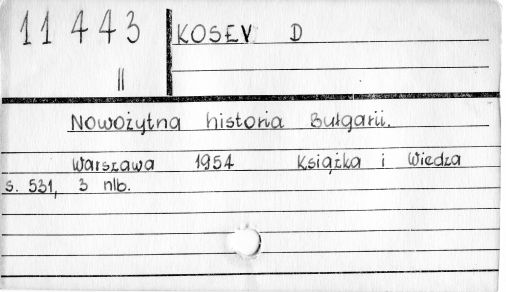 11 443
II
KOSEV D
Nowożytna historia Bułgarii.
Warszawa 1954 Książka i Wiedza
s. 531, 3 nlb.